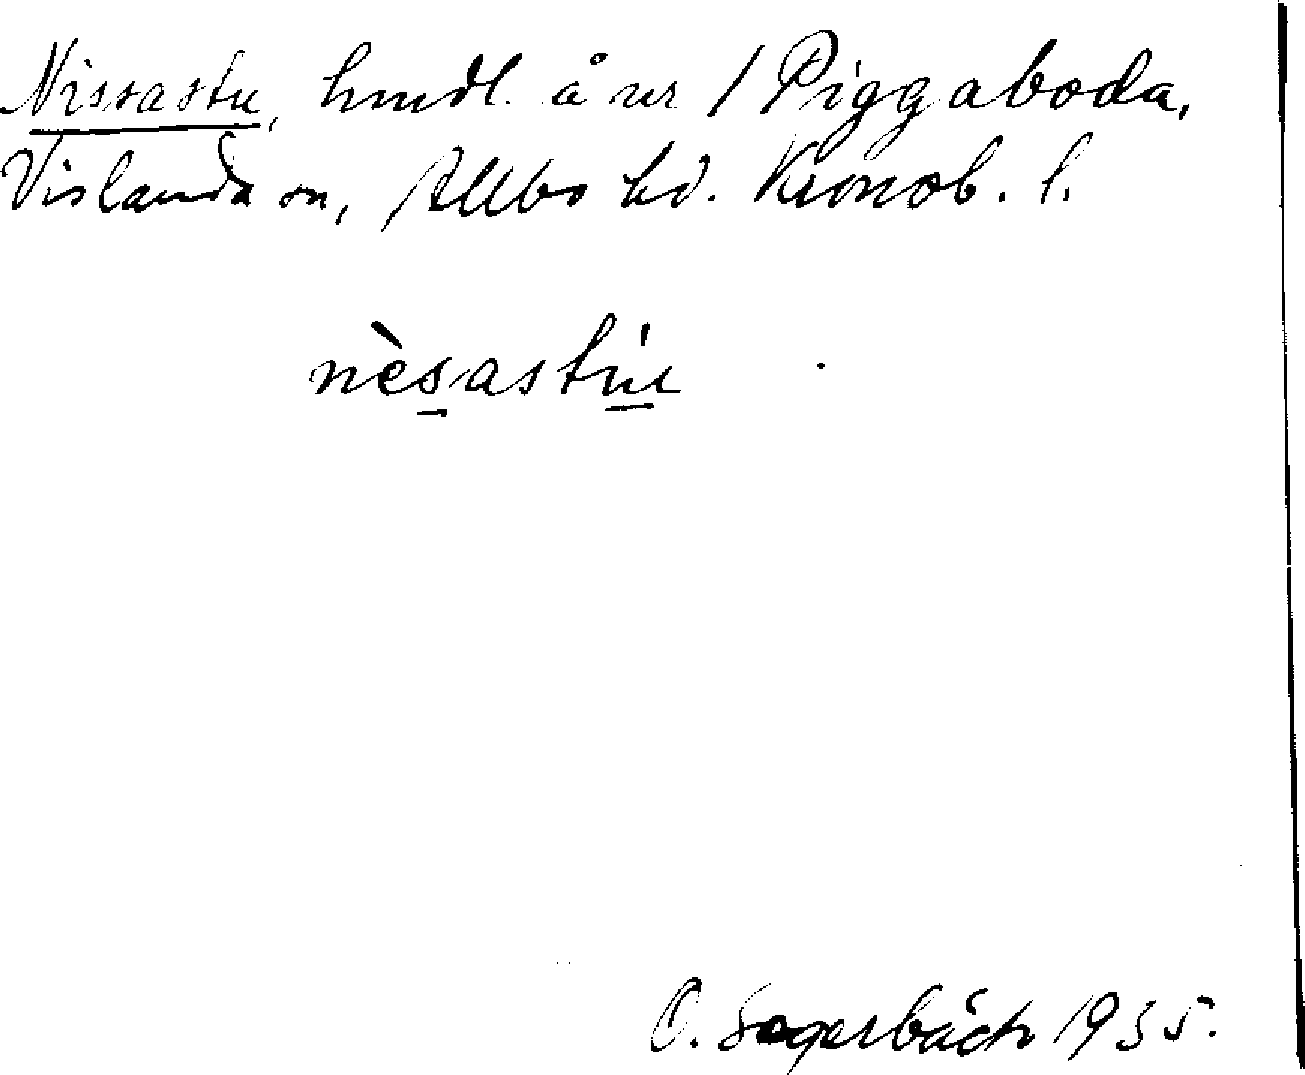 Nissastu, hmdl. å nr 1 Piggaboda,
Vislanda sn, Allbo hd. Kronob. l.
nèsastu̍
O. Sagerbäck 1935.